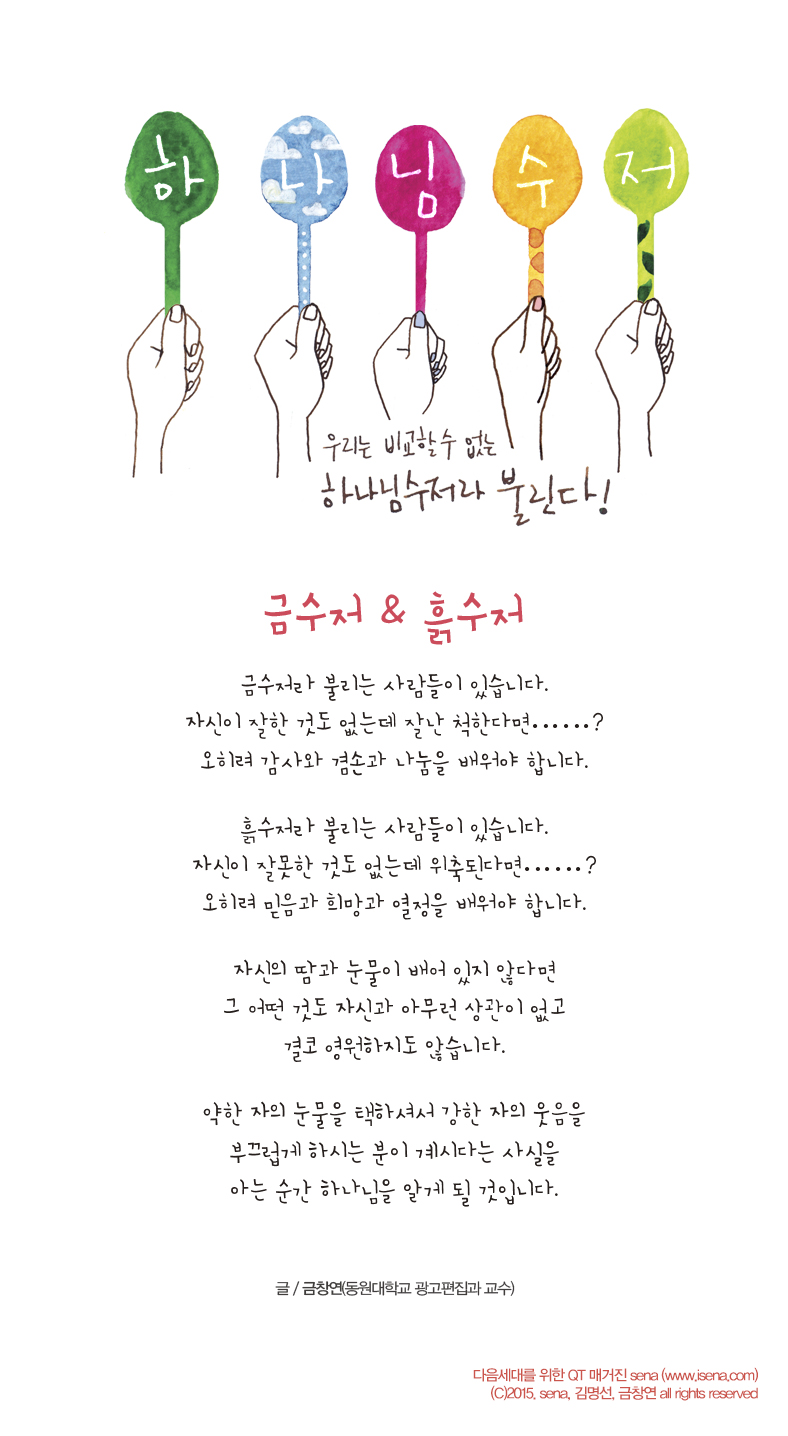 하나님수저
우리는 비교할수 없는
하나님수저라 불린다!
금수저 & 흙수저
금수저라 불리는 사람들이 있습니다.
자신이 잘한 것도 없는데 잘난 척한다면……?
오히려 감사와 겸손과 나눔을 배워야 합니다.
흙수저라 불리는 사람들이 있습니다.
자신이 잘못한 것도 없는데 위축된다면……?
오히려 믿음과 희망과 열정을 배워야 합니다.
자신의 땀과 눈물이 배어 있지 않다면
그 어떤 것도 자신과 아무런 상관이 없고
결코 영원하지도 않습니다.
약한 자의 눈물을 택하셔서 강한 자의 웃음을
부끄럽게 하시는 분이 계시다는 사실을
아는 순간 하나님을 알게 될 것입니다.
글 / 금창연(동원대학교 광고편집과 교수)
다음세대를 위한 QT 매거진 sena (www.isena.com)
(C)2015. sena, 김명선, 금창연 all rights reserved